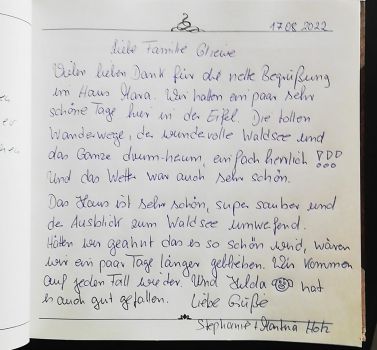 17.08.2022
Liebe Familie
Vielen lieben Dank für die nette Begrüßung
im Haus Mara. Wir hatten ein paar sehr
schöne Tage hier in der Eifel. Die tollen
Wanderwege, der wundervolle Waldsee und
das Ganze drum-herum, einfach herrlich !!!
Und das Wetter war auch sehr schön.
Das Haus ist sehr schön, super sauber und
der Ausblick zum Waldsee umwerfend.
Hätten wir geahnt das es so schön wird, wären
wir ein paar Tage länger geblieben. Wir kommen
auf jeden Fall wieder. Und Hulda hat
es auch gut gefallen. Liebe Grüße
Stephanie + Martina Hotz